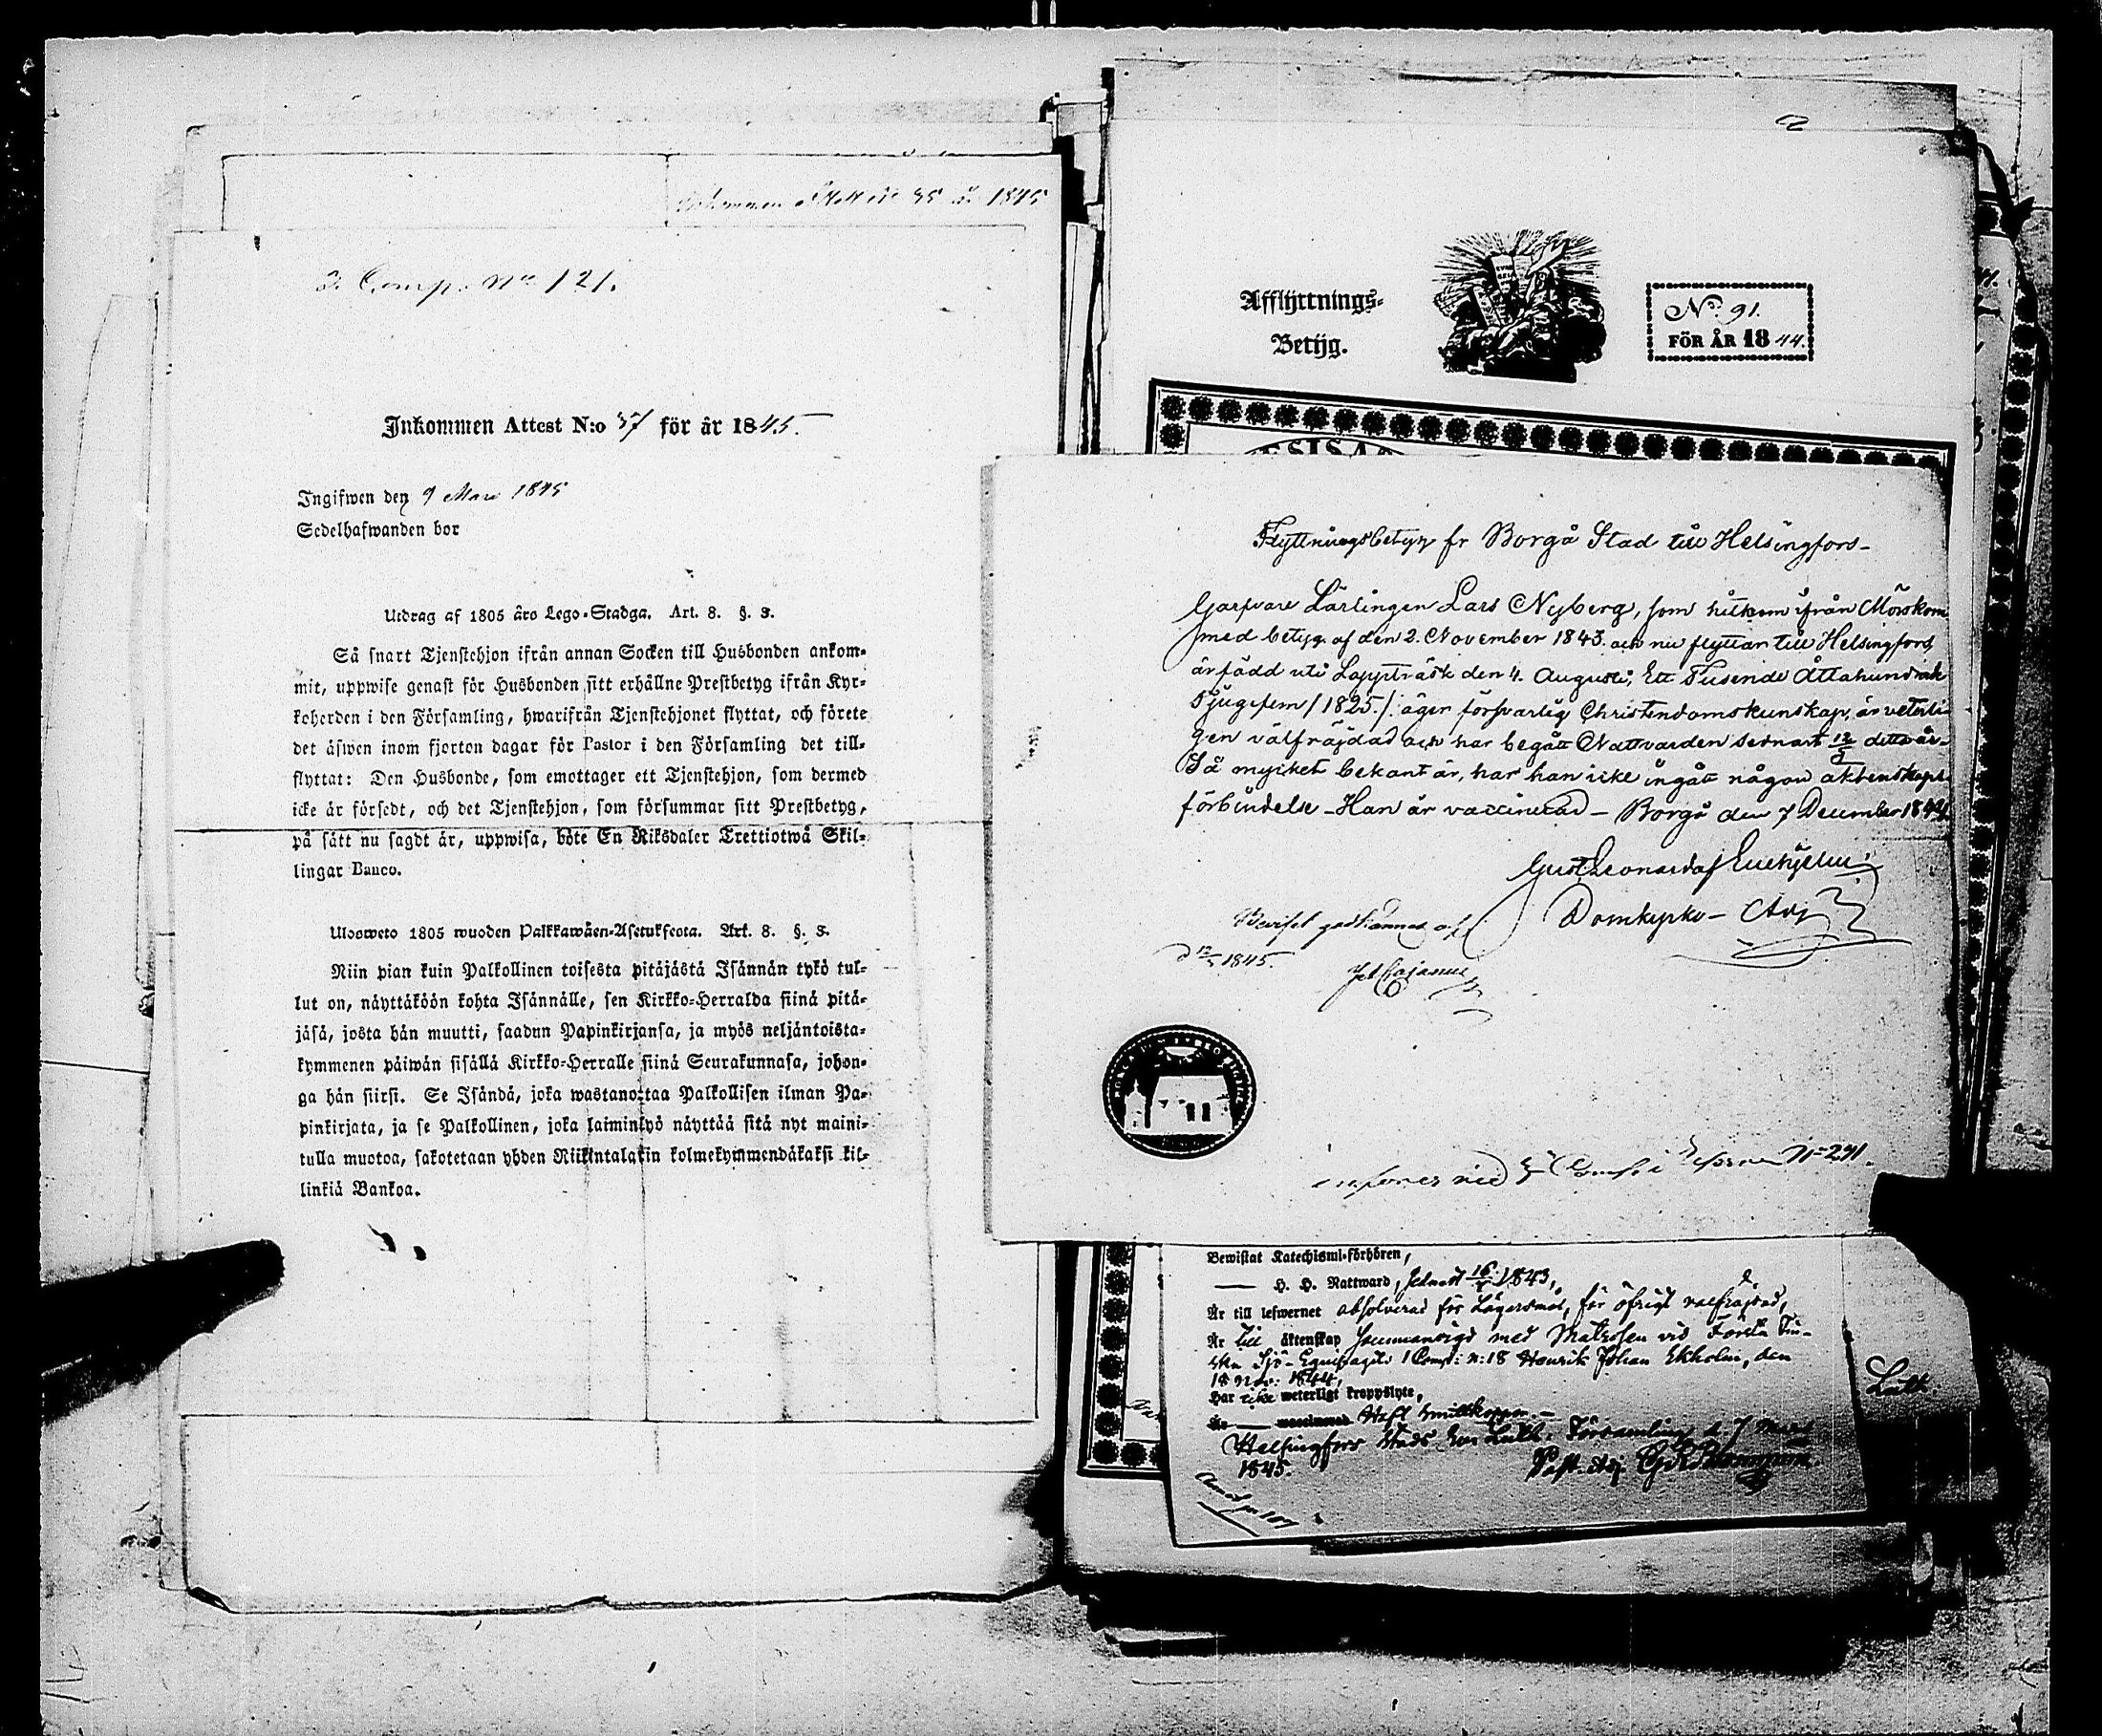 Inkommen Attest No 35 år 1845
2. Comp. No 121.
Inkommen Attest N:o 37 för år 1845.
Ingifwen den 9 Mars 1845
Sedelhafwanden bor
Utdrag af 1805 års Lego-Stadga. Art. 8. §. 3.
Så snart Tjenstehjon ifrån annan Socken till Husbonden ankom-
mit, uppwise genast för Husbonden sitt erhållne Prestbetyg ifrån Kyr-
koherden i den Församling, hwarifrån Tjenstehjonet flyttat, och förete
det äfwen inom fjorton dagar för Pastor i den Församling det till-
flyttat: Den Husbonde, som emottager ett Tjenstehjon, som dermed
icke är försedt, och det Tjenstehjon, som försummar sitt Prestbetyg,
på sätt nu sagdt är, uppwisa, böte En Riksdaler Trettiotwå Skil-
lingar Banco.
Ulosweto 1805 wuoden Palkkawäen-Asetuksesta. Art. 8. §. 3.
Niin pian kuin Palkollinen toisesta pitäjästä Isännän tykö tul-
lut on, näyttäköön kohta Isännälle, sen Kirkko-Herralda siinä pitä-
jäsä, josta hän muutti, saadun Papinkirjansa, ja myös neljäntoista-
kymmenen päiwän sisällä Kirkko-Herralle siinä Seurakunnasa, johon-
ga hän siirsi. Se Isändä, joka wastanottaa Palkollisen ilman Pa-
pinkirjata, ja se Palkollinen, joka laiminlyö näyttää sitä nyt maini-
tulla muotoa, sakotetaan yhden Riikintalarin kolmekymmendäkaksi kil-
linkiä Bankoa.
Afflyttnings-
Betyg.
No. 91.
FÖR ÅR 1844.
Flyttningsbetyg fr Borgå Stad till Helsingfors-
Garfvare Lärlingen Lars Nyberg, som hitkom ifrån Mörskom
med betyg af den 2. November 1843. och nu flyttar till Helsingfors,
är född uti Lappträsk den 4. Augusti, Ett Tusende Åttahundrade
Tjugefem /1825./. äger försvarlig Christendomskunskap, är veterli-
gen välfräjdad och har begått Nattvarden sednast 12/5 detta år-
Så mycket bekant är, har han icke ingått någon äktenskaps
förbindelse - Han är vaccinerad - Borgå den 7 December 1844.
Gust. Leonard af Enehjelm
Domkyrko- Adj
Beviset godkännes af
d 12/5 1845.
Cajanus
No 291.
Bewistat Katechismi-förhören,
— H. H. Nattward, sednast 1843,
Är till lefwernet absolverad för Lägersmål, för öfrigt välfräjdad,
Är till äktenskap sammanvigd med Matrosen vid Första Fin-
ska Sjö-Equipagets 1 Comp: n:18 Henrik Johan Ekholm, den
18 1844,
Har icke weterligt kroppslyte,
Är — waccinerad Haft Smittkoppor. -
Helsingfors Stads Ev. Luth. Församling, d. 7 Mars
1845. Past. Adj.
Luth.